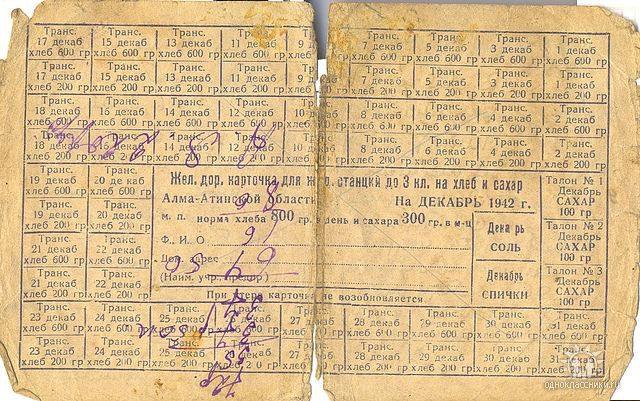 Транс. Транс. Транс. Транс. Транс. Транс. Транс. Транс.
17 декаб 15 декаб 13 декаб 11 декаб 9 7 декаб 5 декаб 3 декаб 1 декаб
хлеб 600 гр хлеб 600 гр хлеб 600 гр хлеб 600 гр хлеб 600 гр хлеб 600 гр хлеб 600 гр хлеб 600 гр
Транс. Транс. Транс. Транс. Транс. Транс. Транс. Транс.
17 декаб 15 декаб 13 декаб 11 декаб 9 7 декаб 5 декаб 3 декаб 1 декаб
хлеб 200 гр хлеб 200 гр хлеб 200 гр хлеб 200 гр хлеб 200 гр хлеб 200 гр хлеб 200 гр хлеб 200 гр
Транс. Транс. Транс. Транс. Транс. Транс. Транс. Транс.
18 декаб 16 декаб 14 декаб 12 декаб 10 8 декаб 6 декаб 4 декаб 2 декаб
хлеб 600 гр хлеб 600 гр хлеб 600 гр хлеб 600 гр хлеб 600 гр хлеб 600 гр хлеб 600 гр хлеб 600 гр
Транс. Транс. Транс. Транс. Транс. Транс. Транс.
18 декаб 16 декаб 14 декаб 12 10 8 декаб 6 декаб 4 декаб 2 декаб
хлеб 200 гр хлеб 200 гр хлеб 200 гр хлеб 200 гр хлеб 200 гр хлеб 200 гр хлеб 200 гр
Транс. Транс.
19 декаб 20 декаб
хлеб 600 гр хлеб 600 гр
Транс. Транс.
19 декаб 20 декаб
хлеб 200 гр хлеб 200 гр
Транс. Транс.
21 декаб 22 декаб
хлеб 600 гр хлеб 600 гр
Транс. Транс.
21 декаб 22 декаб
хлеб 200 гр хлеб 200 гр
Жел. дор. карточка для станций до 3 кл. на хлеб и сахар
Алма-Атинской области На ДЕКАБРЬ 1942 г.
м. п. норма хлеба 800 гр. в день и сахара 300 гр. в м-ц
Ф. И. О.
Дом. адрес
(Наим. учр.
При утере карточка не возобновляется.
Декабрь
СОЛЬ
Декабрь
СПИЧКИ
Талон № 1
Декабрь
САХАР
100 гр
Талон № 2
Декабрь
САХАР
100 гр
Талон № 3
Декабрь
САХАР
100 гр
Транс. Транс. Транс. Транс. Транс. Транс. Транс.
23 декаб 24 декаб 25 декаб 27 28 декаб 29 декаб 30 декаб 31 декаб
хлеб 600 гр хлеб 600 гр хлеб 600 гр хлеб 600 гр хлеб 600 гр хлеб 600 гр
Транс. Транс. Транс. Транс. Транс. Транс. Транс. Транс.
23 декаб 24 декаб 25 декаб 27 28 декаб 29 декаб 30 декаб 31 декаб
хлеб 200 гр хлеб 200 гр хлеб 200 гр хлеб 200 гр хлеб 200 гр хлеб 200 гр хлеб 200 гр
одноклассники.ru